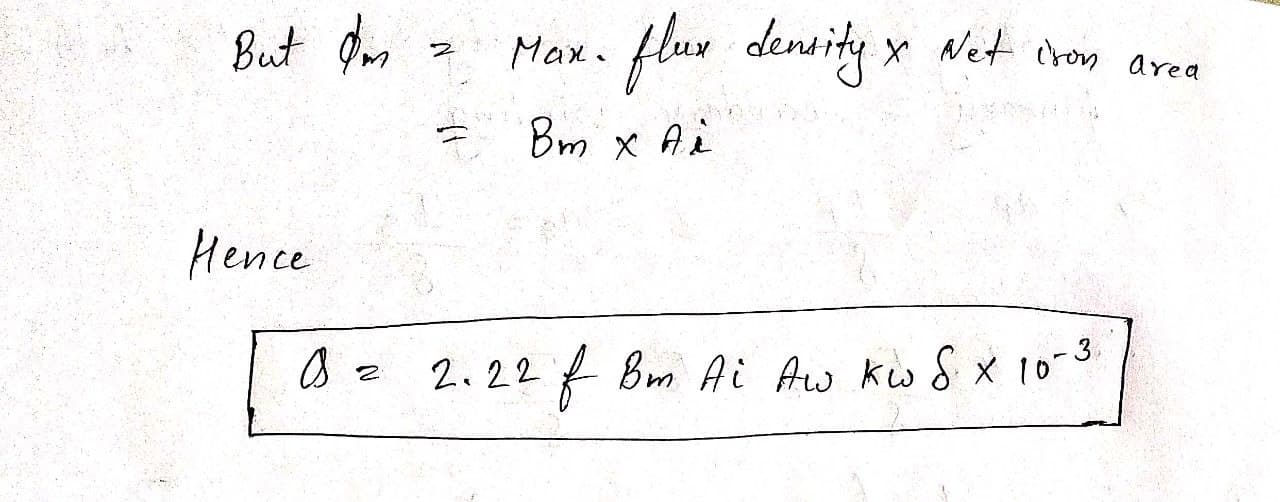 But Φm = Max. flux density x Net iron area
= Bm x Ai
Hence
Q = 2.22 f Bm Ai Aw Kw δ x 10⁻³